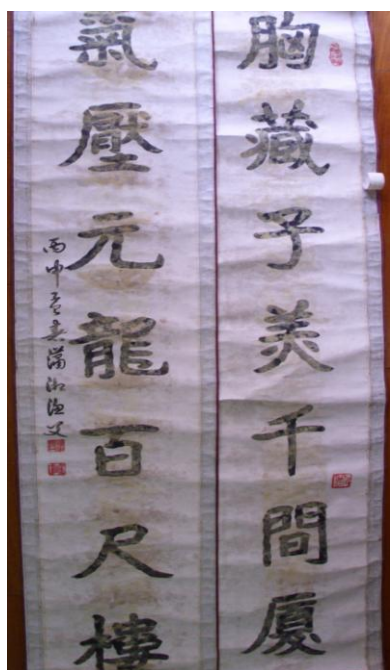 胸藏子美千間廈
氣壓元龍百尺樓
丙申孟春瀟湘漁父